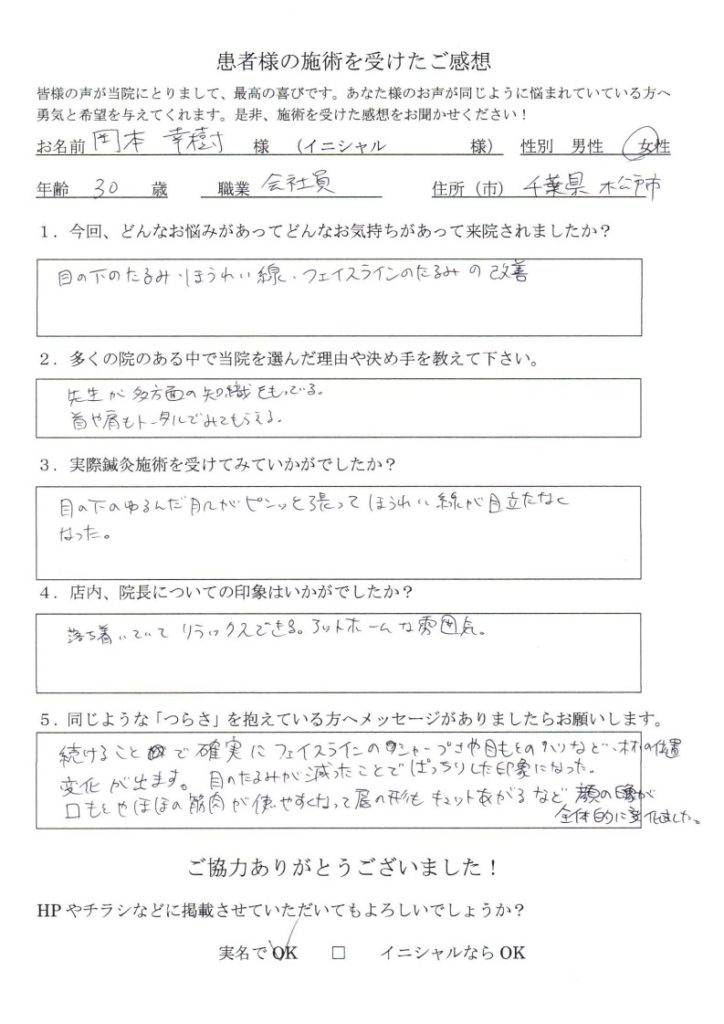 患者様の施術を受けたご感想
皆様の声が当院にとりまして、最高の喜びです。あなた様のお声が同じように悩まれていている方へ
勇気と希望を与えてくれます。是非、施術を受けた感想をお聞かせください！
お名前 岡本 幸樹 様 （イニシャル 様） 性別 男性 女性
年齢 30 歳 職業 会社員 住所（市） 千葉県 松戸市
１．今回、どんなお悩みがあってどんなお気持ちがあって来院されましたか？
目の下のたるみ・ほうれい線・フェイスラインのたるみの改善
２．多くの院のある中で当院を選んだ理由や決め手を教えて下さい。
先生が多方面の知識をもっている。
首や肩もトータルでみてもらえる。
３．実際鍼灸施術を受けてみていかがでしたか？
目の下のゆるんだ肌がピンッと張ってほうれい線が目立たなく
なった。
４．店内、院長についての印象はいかがでしたか？
落ち着いていてリラックスできる。アットホームな雰囲気。
５．同じような「つらさ」を抱えている方へメッセージがありましたらお願いします。
続けることで確実にフェイスラインのシャープさや目もとのハリなど、の位置
変化が出ます。目のたるみが減ったことでぱっちりした印象になった。
口もとやほほの筋肉が使いやすくなって唇の形もキュットあがるなど 顔の印象が
全体的に変化しました。
ご協力ありがとうございました！
HPやチラシなどに掲載させていただいてもよろしいでしょうか？
実名でOK □ イニシャルならOK